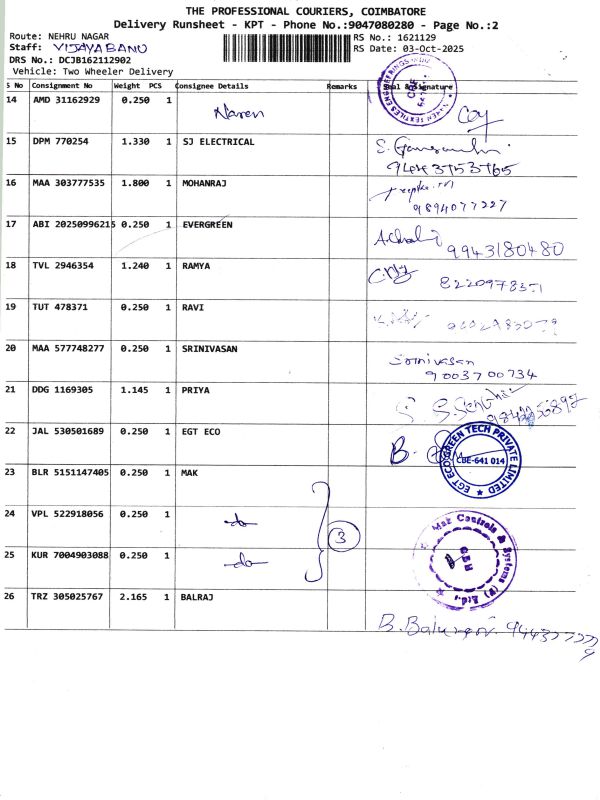 THE PROFESSIONAL COURIERS, COIMBATORE
Delivery Runsheet - KPT - Phone No.:9047080280 - Page No.:2
Route: NEHRU NAGAR RS No.: 1621129
Staff: VIJAYABANU RS Date: 03-Oct-2025
DRS No.: DCJB162112902
Vehicle: Two Wheeler Delivery
S No Consignment No Weight PCS Consignee Details Remarks Seal & Signature
14 AMD 31162929 0.250 1 Naren
15 DPM 770254 1.330 1 SJ ELECTRICAL
16 MAA 303777535 1.800 1 MOHANRAJ
9894077227
17 ABI 20250996215 0.250 1 EVERGREEN
9943180480
18 TVL 2946354 1.240 1 RAMYA
19 TUT 478371 0.250 1 RAVI
20 MAA 577748277 0.250 1 SRINIVASAN
Srinivasan
9003700734
21 DDG 1169305 1.145 1 PRIYA
22 JAL 530501689 0.250 1 EGT ECO B.
EGT ECO GREEN TECH PRIVATE LIMITED
CBE-641 014
23 BLR 5151147405 0.250 1 MAK
24 VPL 522918056 0.250 1 -do-
3
25 KUR 7004903088 0.250 1 -do-
Mak Controls & Systems (P) Ltd.,
26 TRZ 305025767 2.165 1 BALRAJ